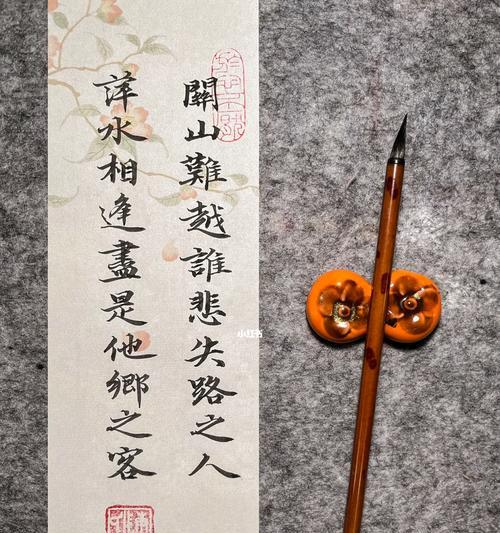 關山難越誰悲失路之人
萍水相逢盡是他鄉之客
小红书